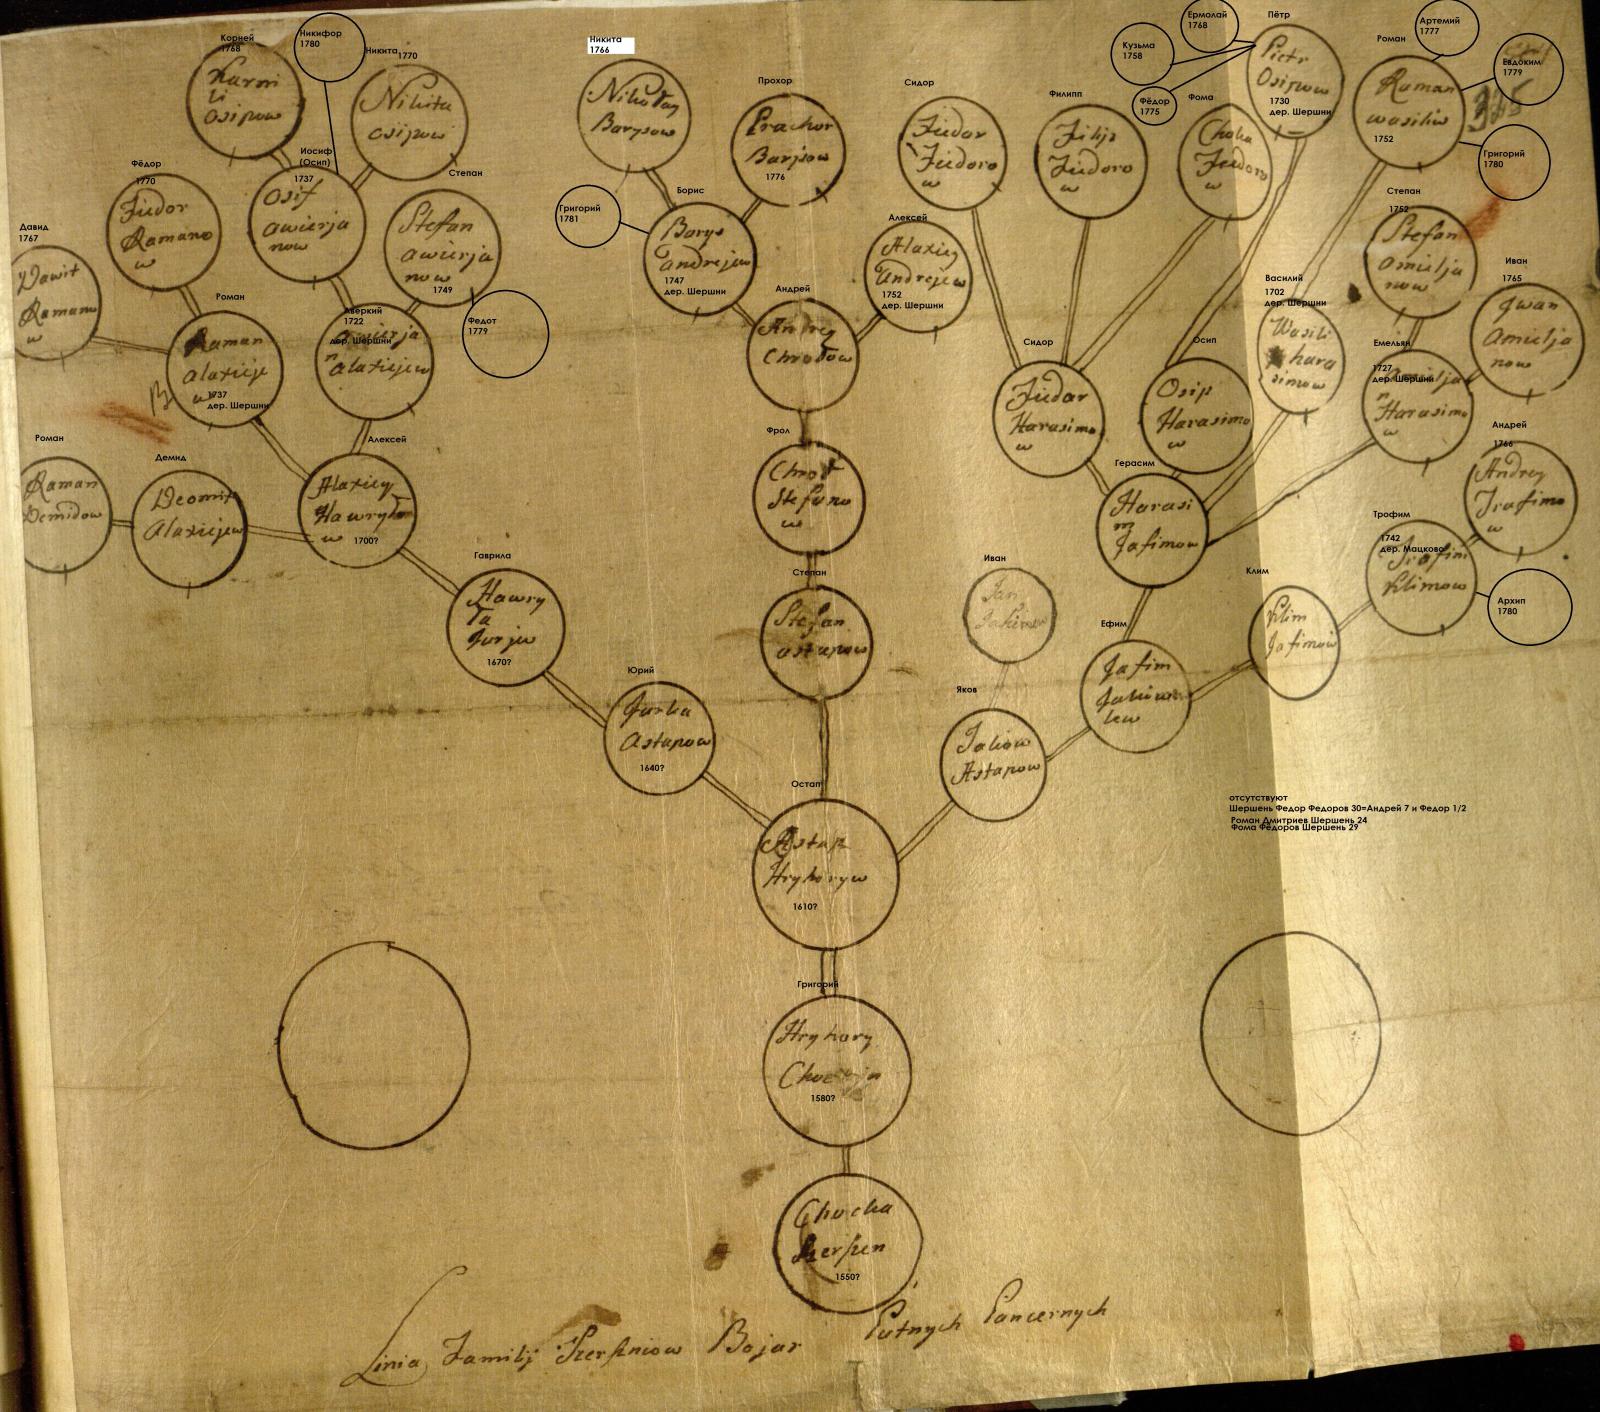 Корней
1768
Karni
Osipow
Никифор
1780
Никита 1770
Nikita
Osipow
Никита
1766
Barysow
Прохор
Prachor
Barysow
1776
Сидор
Филипп
Filip
Fiedoro
w
Фома
Fiedoro
w
Кузьма
1758
Ермолай
1768
Фёдор
1775
Пётр
Piotr
Osipow
1730
дер. Шершни
Роман
Raman
wasiliw
1752
Артемий
1777
Евдоким
1779
365
Григорий
1780
Фёдор
1770
Fiedor
Ramano
w
Иосиф
(Осип)
1737
Osif
awierja
now
Степан
Stefan
awierja
now
1749
Федот
1779
Давид
1767
Dawit
Ramano
w
Роман
Raman
alaxieje
w
1737
дер. Шершни
Аверкий
1722
дер. Шершни
alaxiejew
Григорий
1781
Борис
Borys
andrejew
1747
дер. Шершни
Алексей
Alaxiey
Andrejew
1752
дер. Шершни
Андрей
Andrey
Chrołow
Сидор
Harasimo
w
Осип
Osip
Harasimo
w
Василий
1702
дер. Шершни
Wasili
hara
simow
Степан
1752
Stefan
amielja
now
Иван
1765
Jwan
Amielja
now
Емельян
1727
дер. Шершни
Harasimo
w
Роман
Raman
Demidow
Демид
Alaxiejew
Алексей
Alaxiey
Hawryło
w
1700?
Фрол
Chroł
Stefano
w
Герасим
Harasi
m
Jafimow
Андрей
1766
Andrey
Trafimo
w
Трофим
1742
дер. Мацково
Trafim
Klimow
Архип
1780
Гаврила
Hawry
ła
Jurjew
1670?
Степан
Stefan
astapow
Иван
Jan
Ефим
Jafim
Клим
Klim
Jafimow
Юрий
Jurka
Astapow
1640?
Яков
Jakow
Astapow
Остап
Astap
Hryhoryw
1610?
отсутствуют
Шершень Федор Федоров 30=Андрей 7 и Федор 1/2
Роман Дмитриев Шершень 24
Фома Фёдоров Шершень 29
Григорий
Hryhory
1580?
Chocka
Szerszen
1550?
Linia Familij Szerszniow Bojar Putnych Pancernych